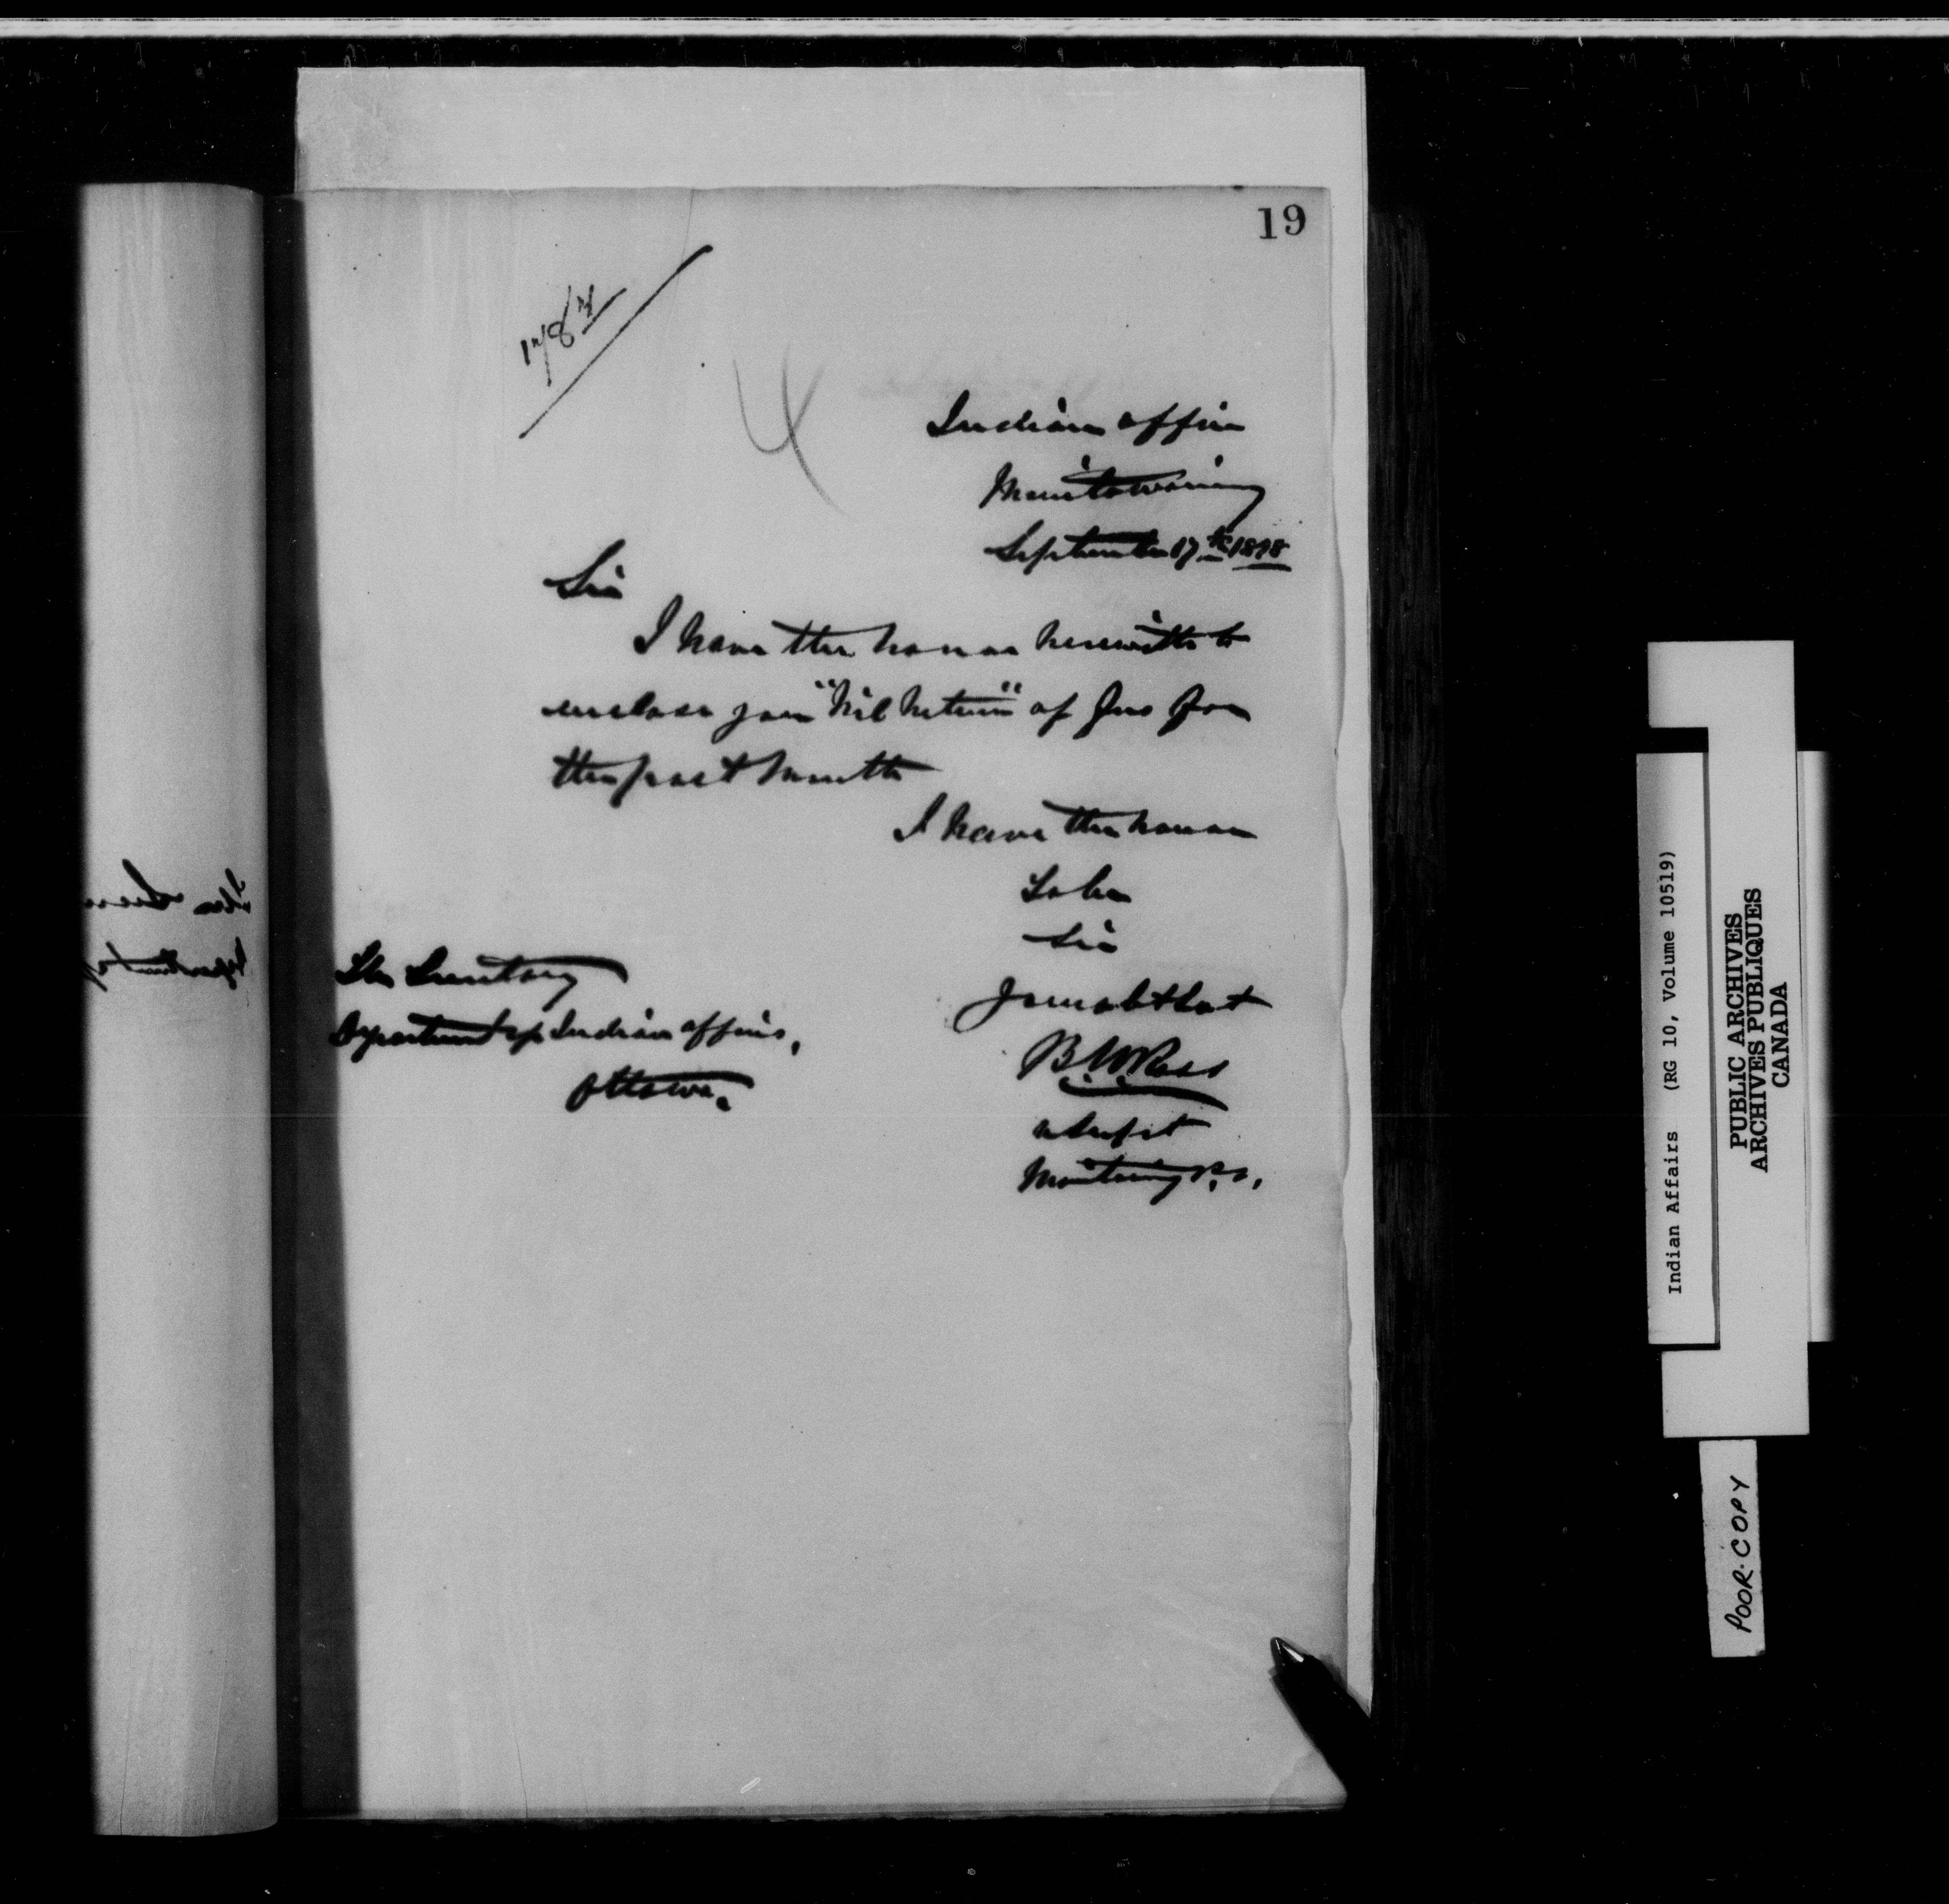 19
Indian Office
Manitowaning
September 17th 1898
Sir
I have the honor herewith to
enclose you "Nil Return" of for
the past month
I have the honor
To be
Sir
Your obt Sert
B. W. Ross
The Secretary
Department of Indian Affairs,
Ottawa.
Supt
Indian Affairs (RG 10, Volume 10519)
PUBLIC ARCHIVES
ARCHIVES PUBLIQUES
CANADA
POOR COPY